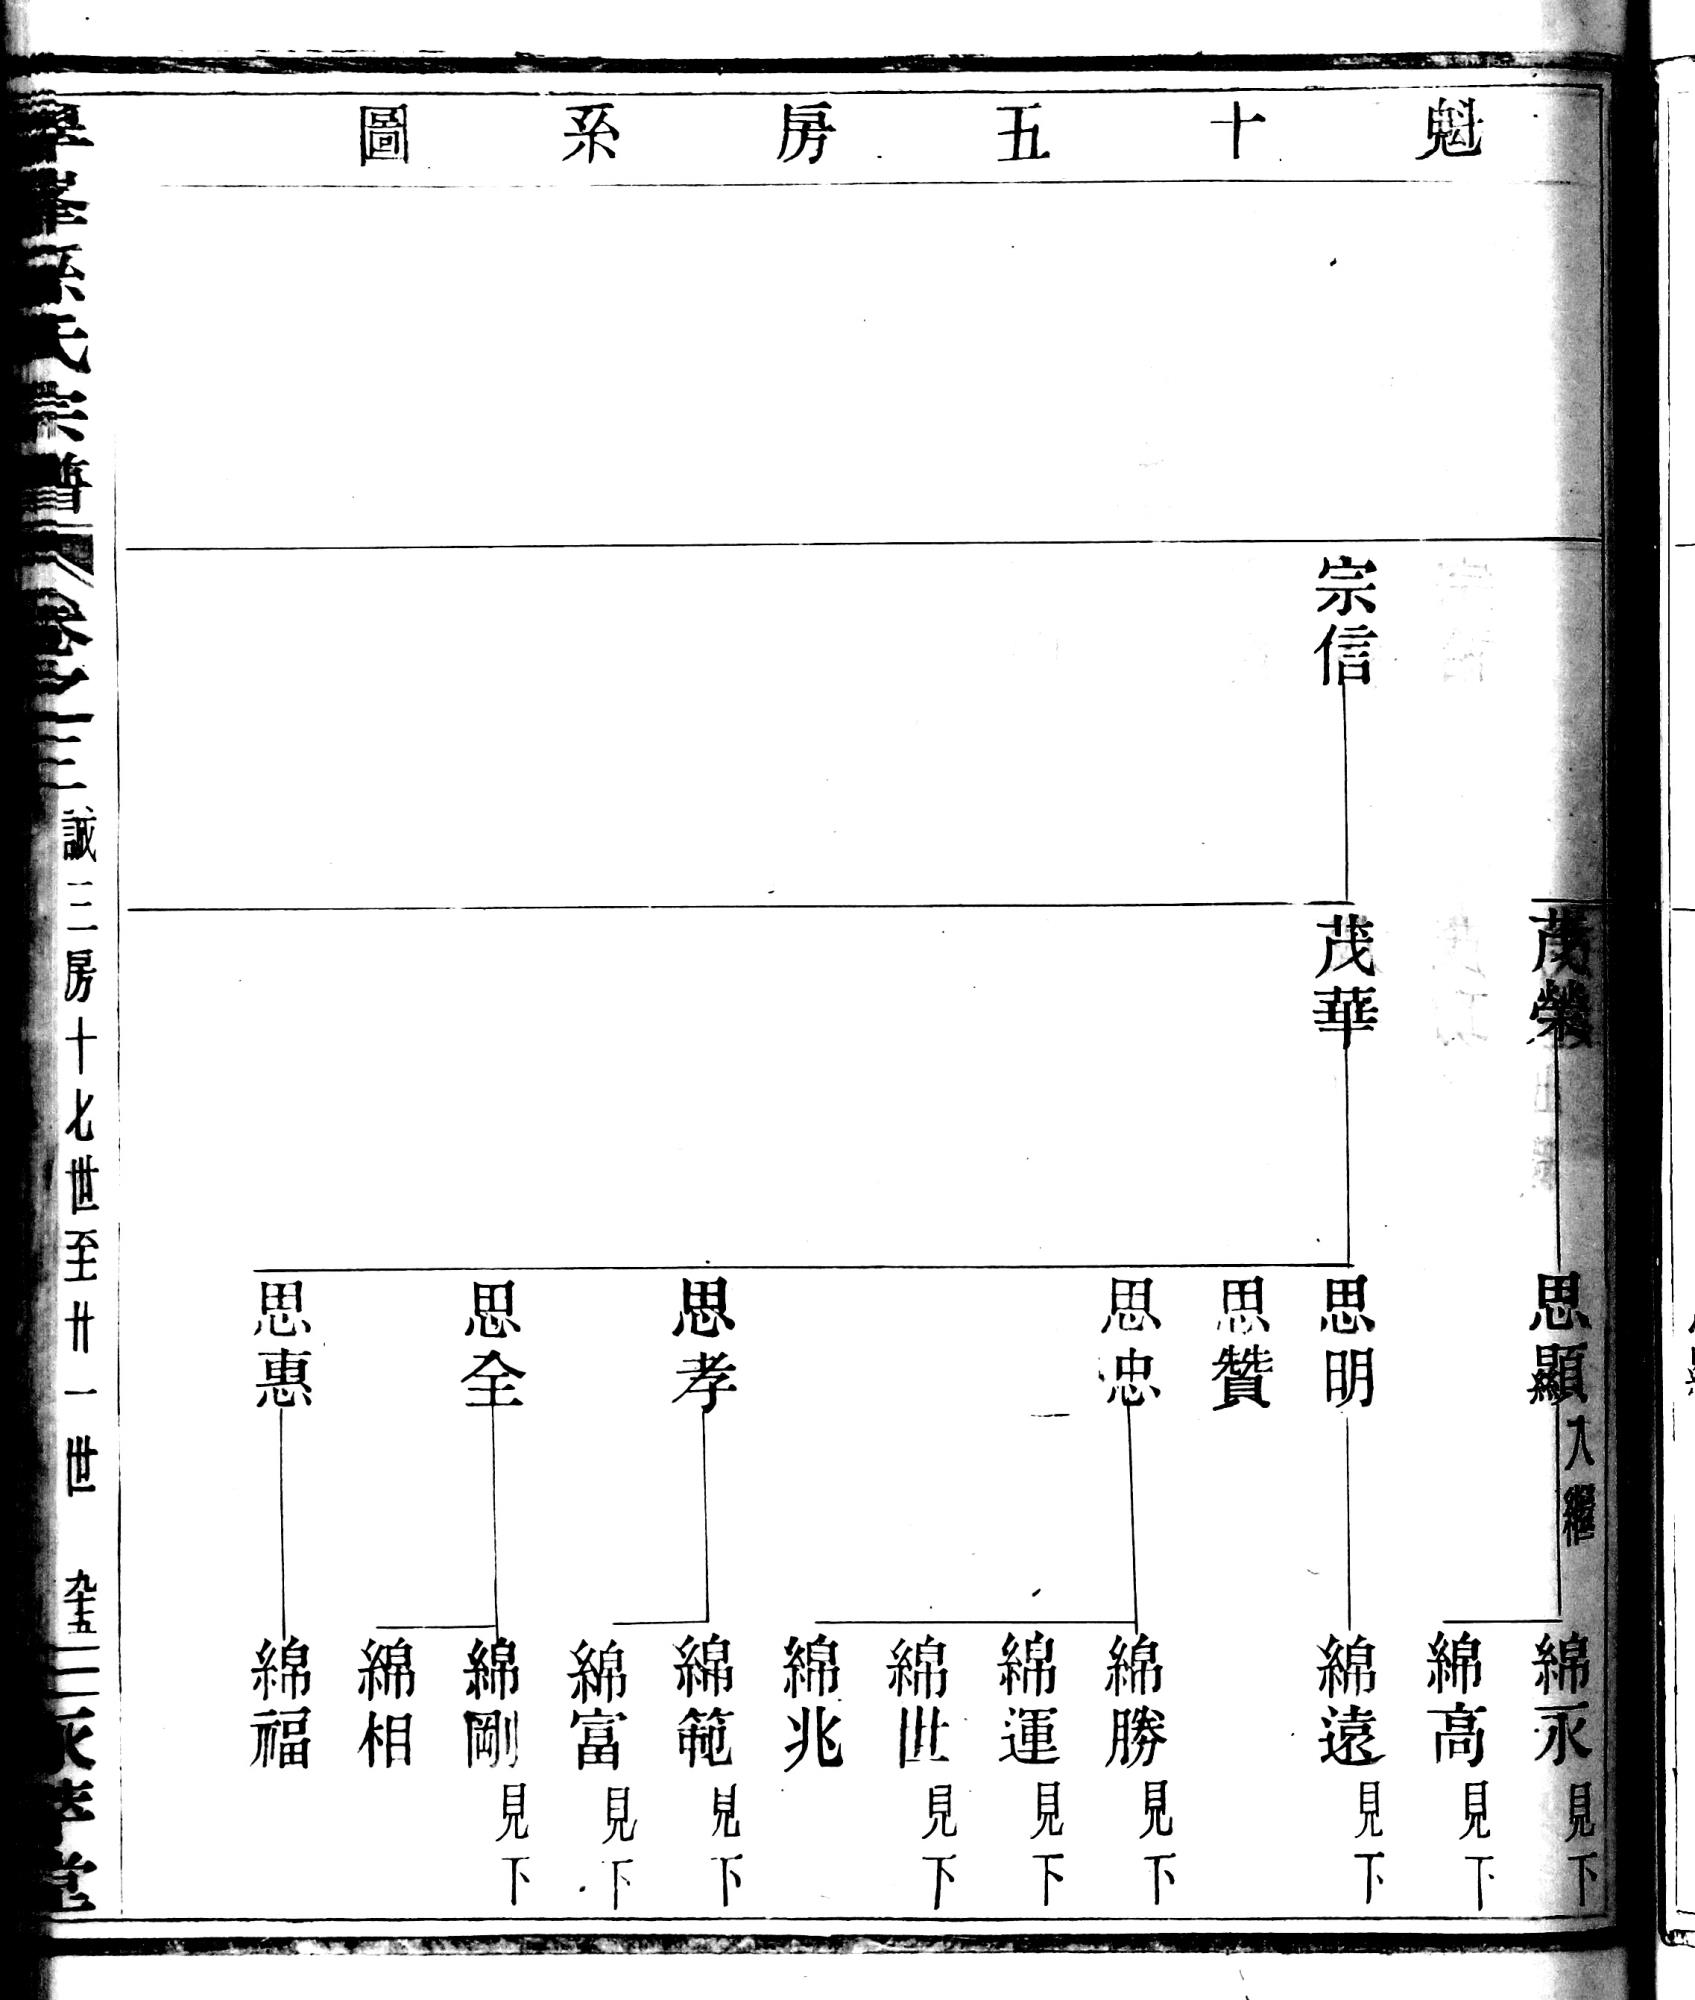 魁十五房系圖
茂榮
思顯入繼
綿永見下
綿高見下
宗信
茂華
思明
綿遠見下
思贊
思忠
綿勝見下
綿運見下
綿世見下
綿兆
思孝
綿範見下
綿富見下
思全
綿剛見下
綿相
思惠
綿福
峯孫氏宗譜
卷之三
誠三房十七世至廿一世
九十五
堂